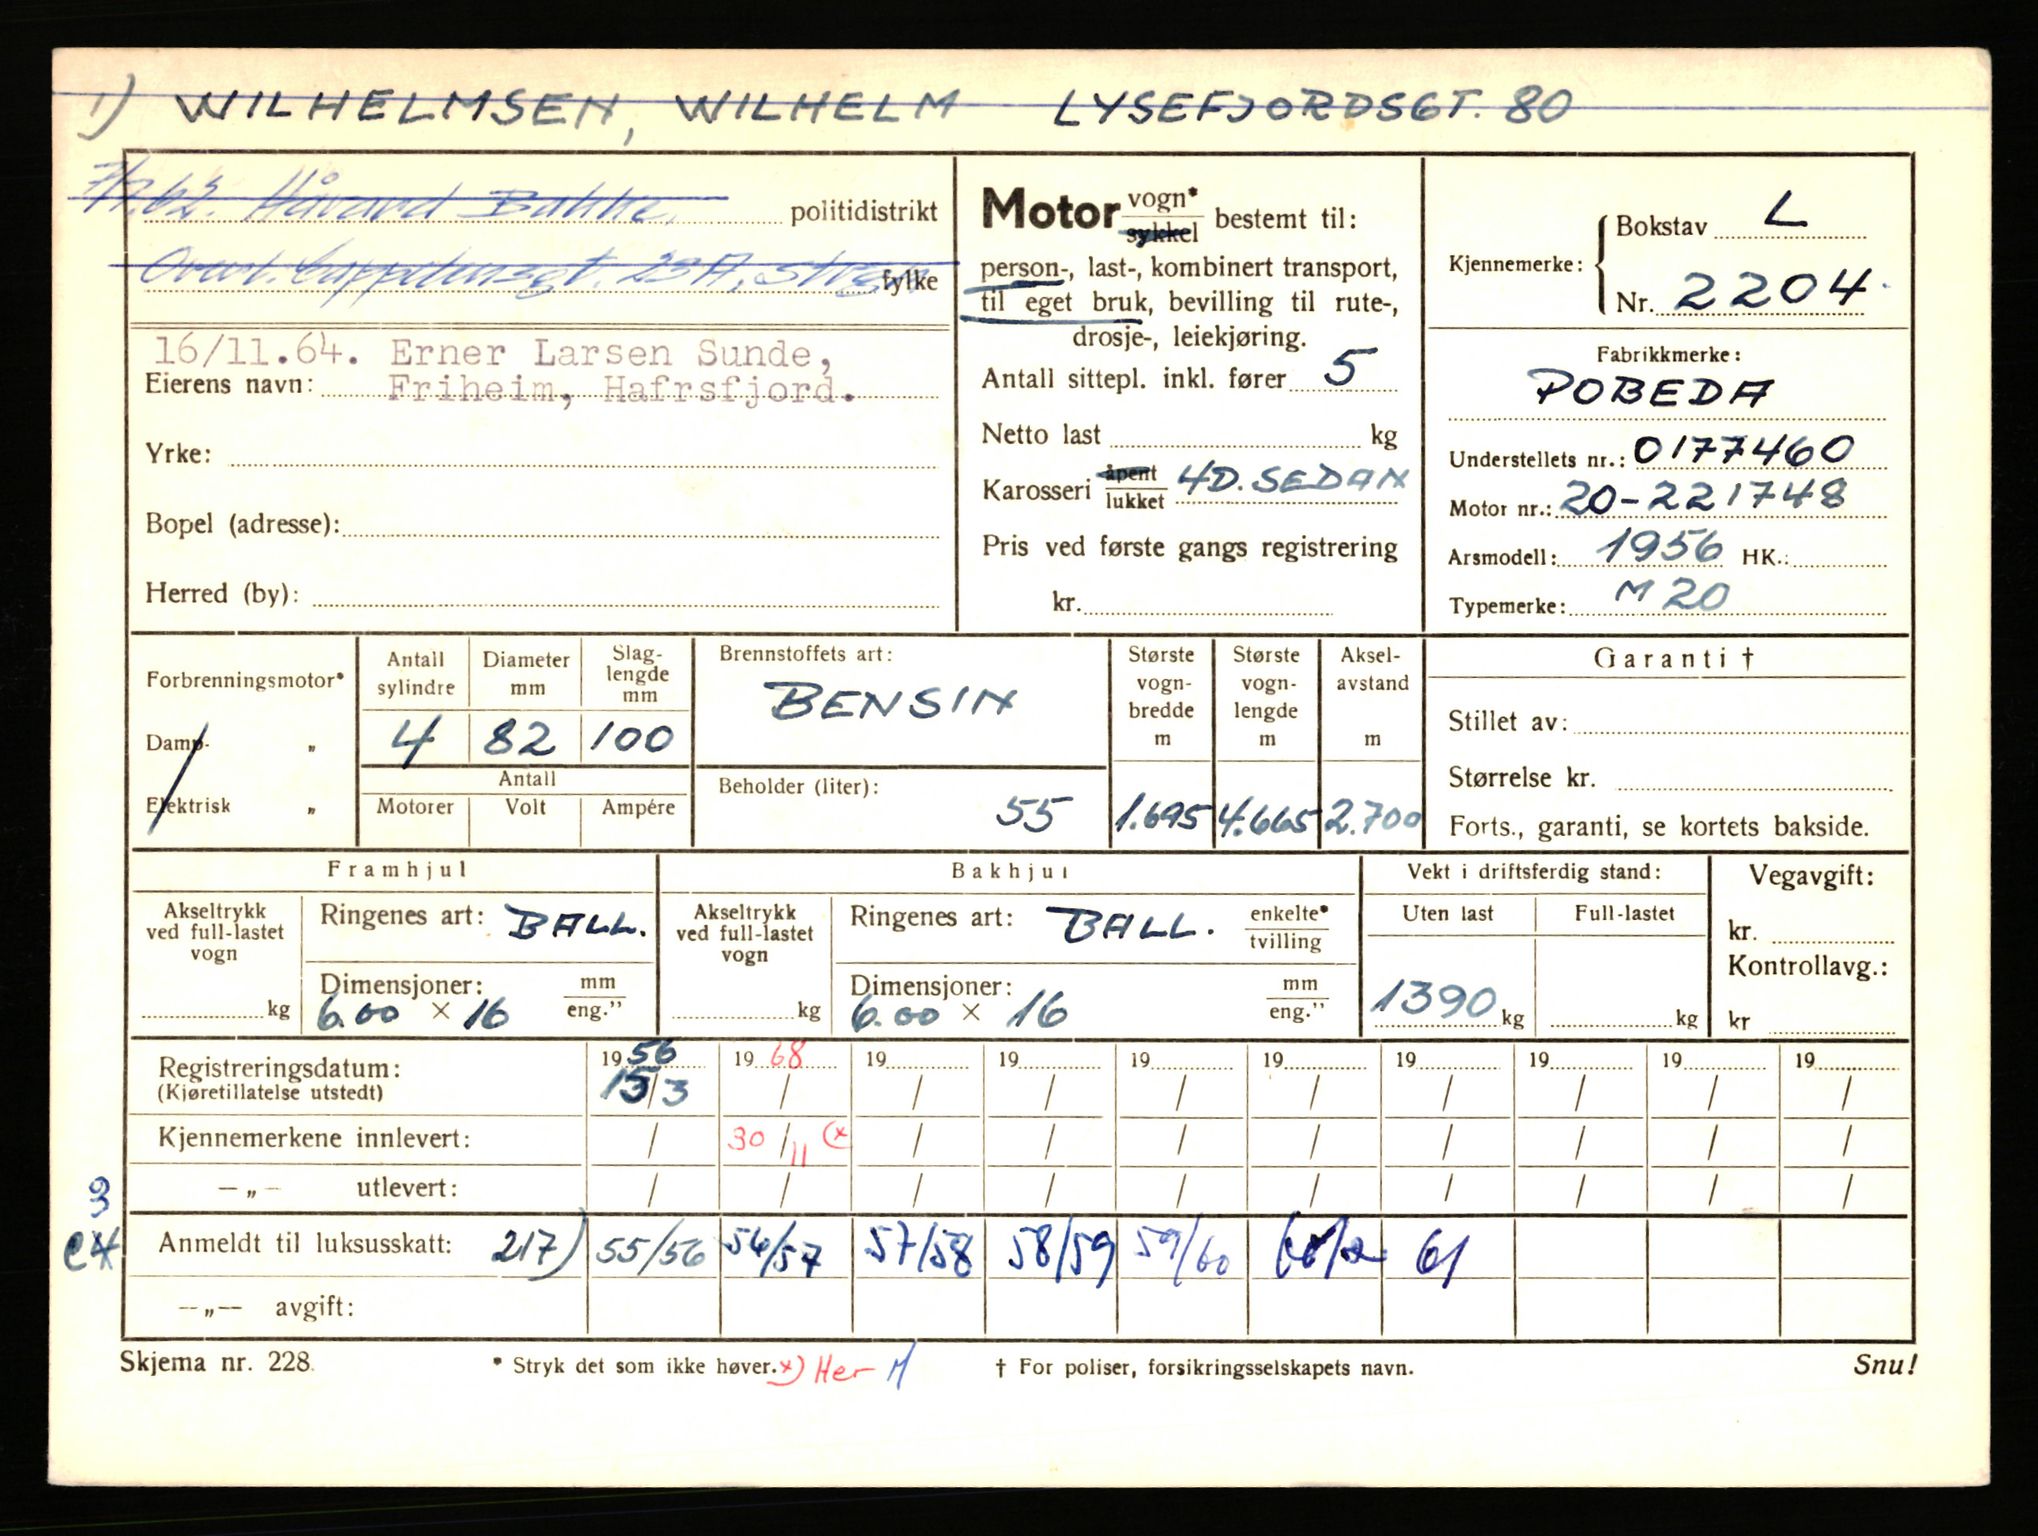 1) WILHELMSEN, WILHELM LYSEFJORDSGT. 80
7/7.62. Håvard Bakke, politidistrikt
fylke
16/11.64. Erner Larsen Sunde,
Eierens navn: Friheim, Hafrsfjord.
Yrke:
Bopel (adresse):
Herred (by):
Motor vogn* sykkel bestemt til:
person-, last-, kombinert transport,
til eget bruk, bevilling til rute-,
drosje-, leiekjøring.
Antall sittepl. inkl. fører 5
Netto last kg
Karosseri åpent lukket 4D. SEDAN
Pris ved første gangs registrering
kr.
Kjennemerke: Bokstav L
Nr. 2204
Fabrikkmerke:
POBEDA
Understellets nr.: 0177460
Motor nr.: 20-221748
Arsmodell: 1956 HK.:
Typemerke: M 20
Forbrenningsmotor*
Damp- „
Elektrisk „
Antall sylindre Diameter mm Slag-lengde mm
4 82 100
Antall
Motorer Volt Ampére
Brennstoffets art:
BENSIN
Beholder (liter):
55
Største vogn-bredde m
1.695
Største vogn-lengde m
4.665
Aksel-avstand m
2.700
Garanti †
Stillet av:
Størrelse kr.
Forts., garanti, se kortets bakside.
Framhjul
Akseltrykk ved full-lastet vogn
kg
Ringenes art: BALL.
Dimensjoner: mm eng."
6.00 × 16
Bakhjul
Akseltrykk ved full-lastet vogn
kg
Ringenes art: BALL. enkelte* tvilling
Dimensjoner: mm eng."
6.00 × 16
Vekt i driftsferdig stand:
Uten last Full-lastet
1390 kg kg
Vegavgift:
kr.
Kontrollavg.:
kr
Registreringsdatum: 1956 1968 19 19 19 19 19 19 19 19
(Kjøretillatelse utstedt) 15/3 / / / / / / / / /
Kjennemerkene innlevert: / 30/11 (* / / / / / / / /
—„— utlevert: / / / / / / / / / /
Anmeldt til luksusskatt: 217) 55/56 56/57 57/58 58/59 59/60 61
—„— avgift:
Skjema nr. 228. * Stryk det som ikke høver. *) Her M † For poliser, forsikringsselskapets navn. Snu!